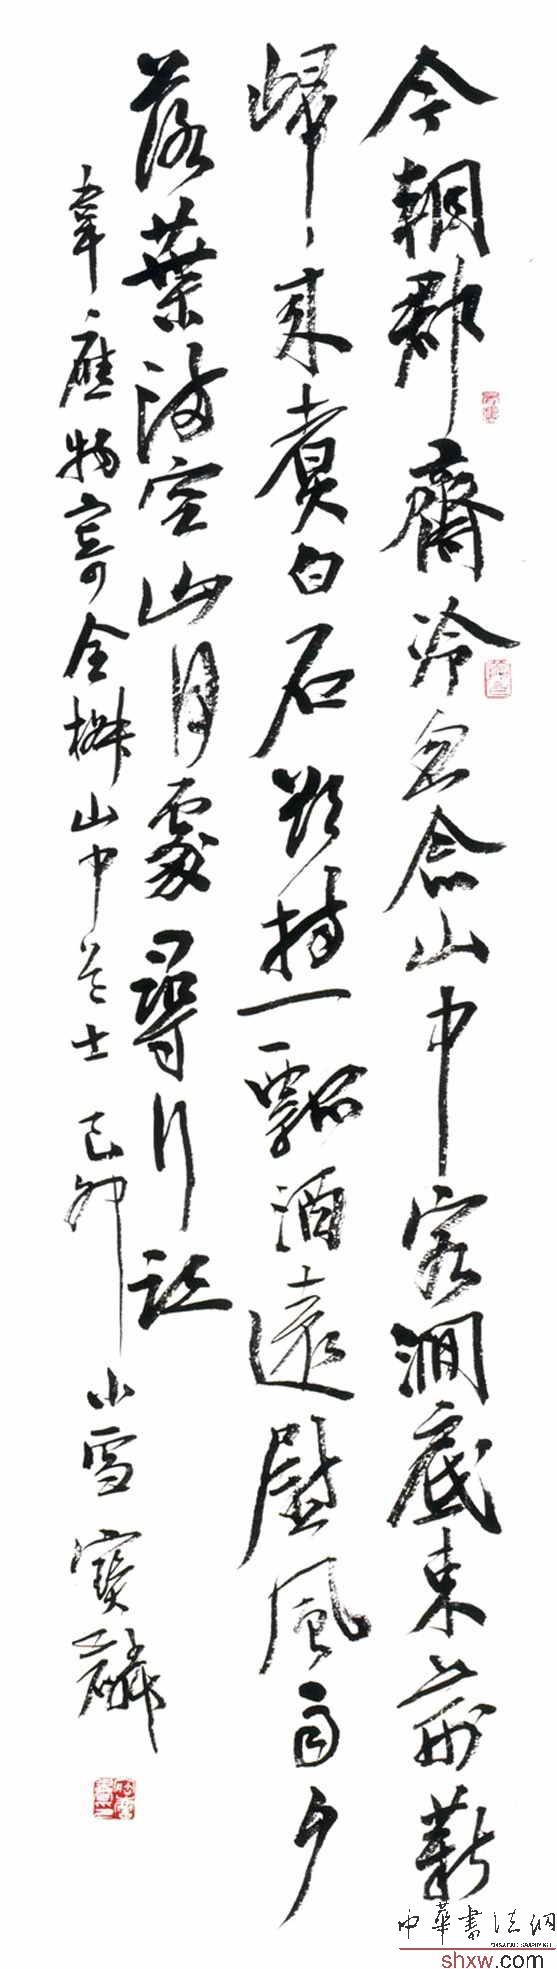 今朝郡齋冷忽念山中客澗底束荊薪
歸來煮白石欲持一瓢酒遠慰風雨夕
落葉滿空山何處尋行迹
韋應物寄全椒山中道士 己卯 小雪 寶麟
中華書法網
shxw.com